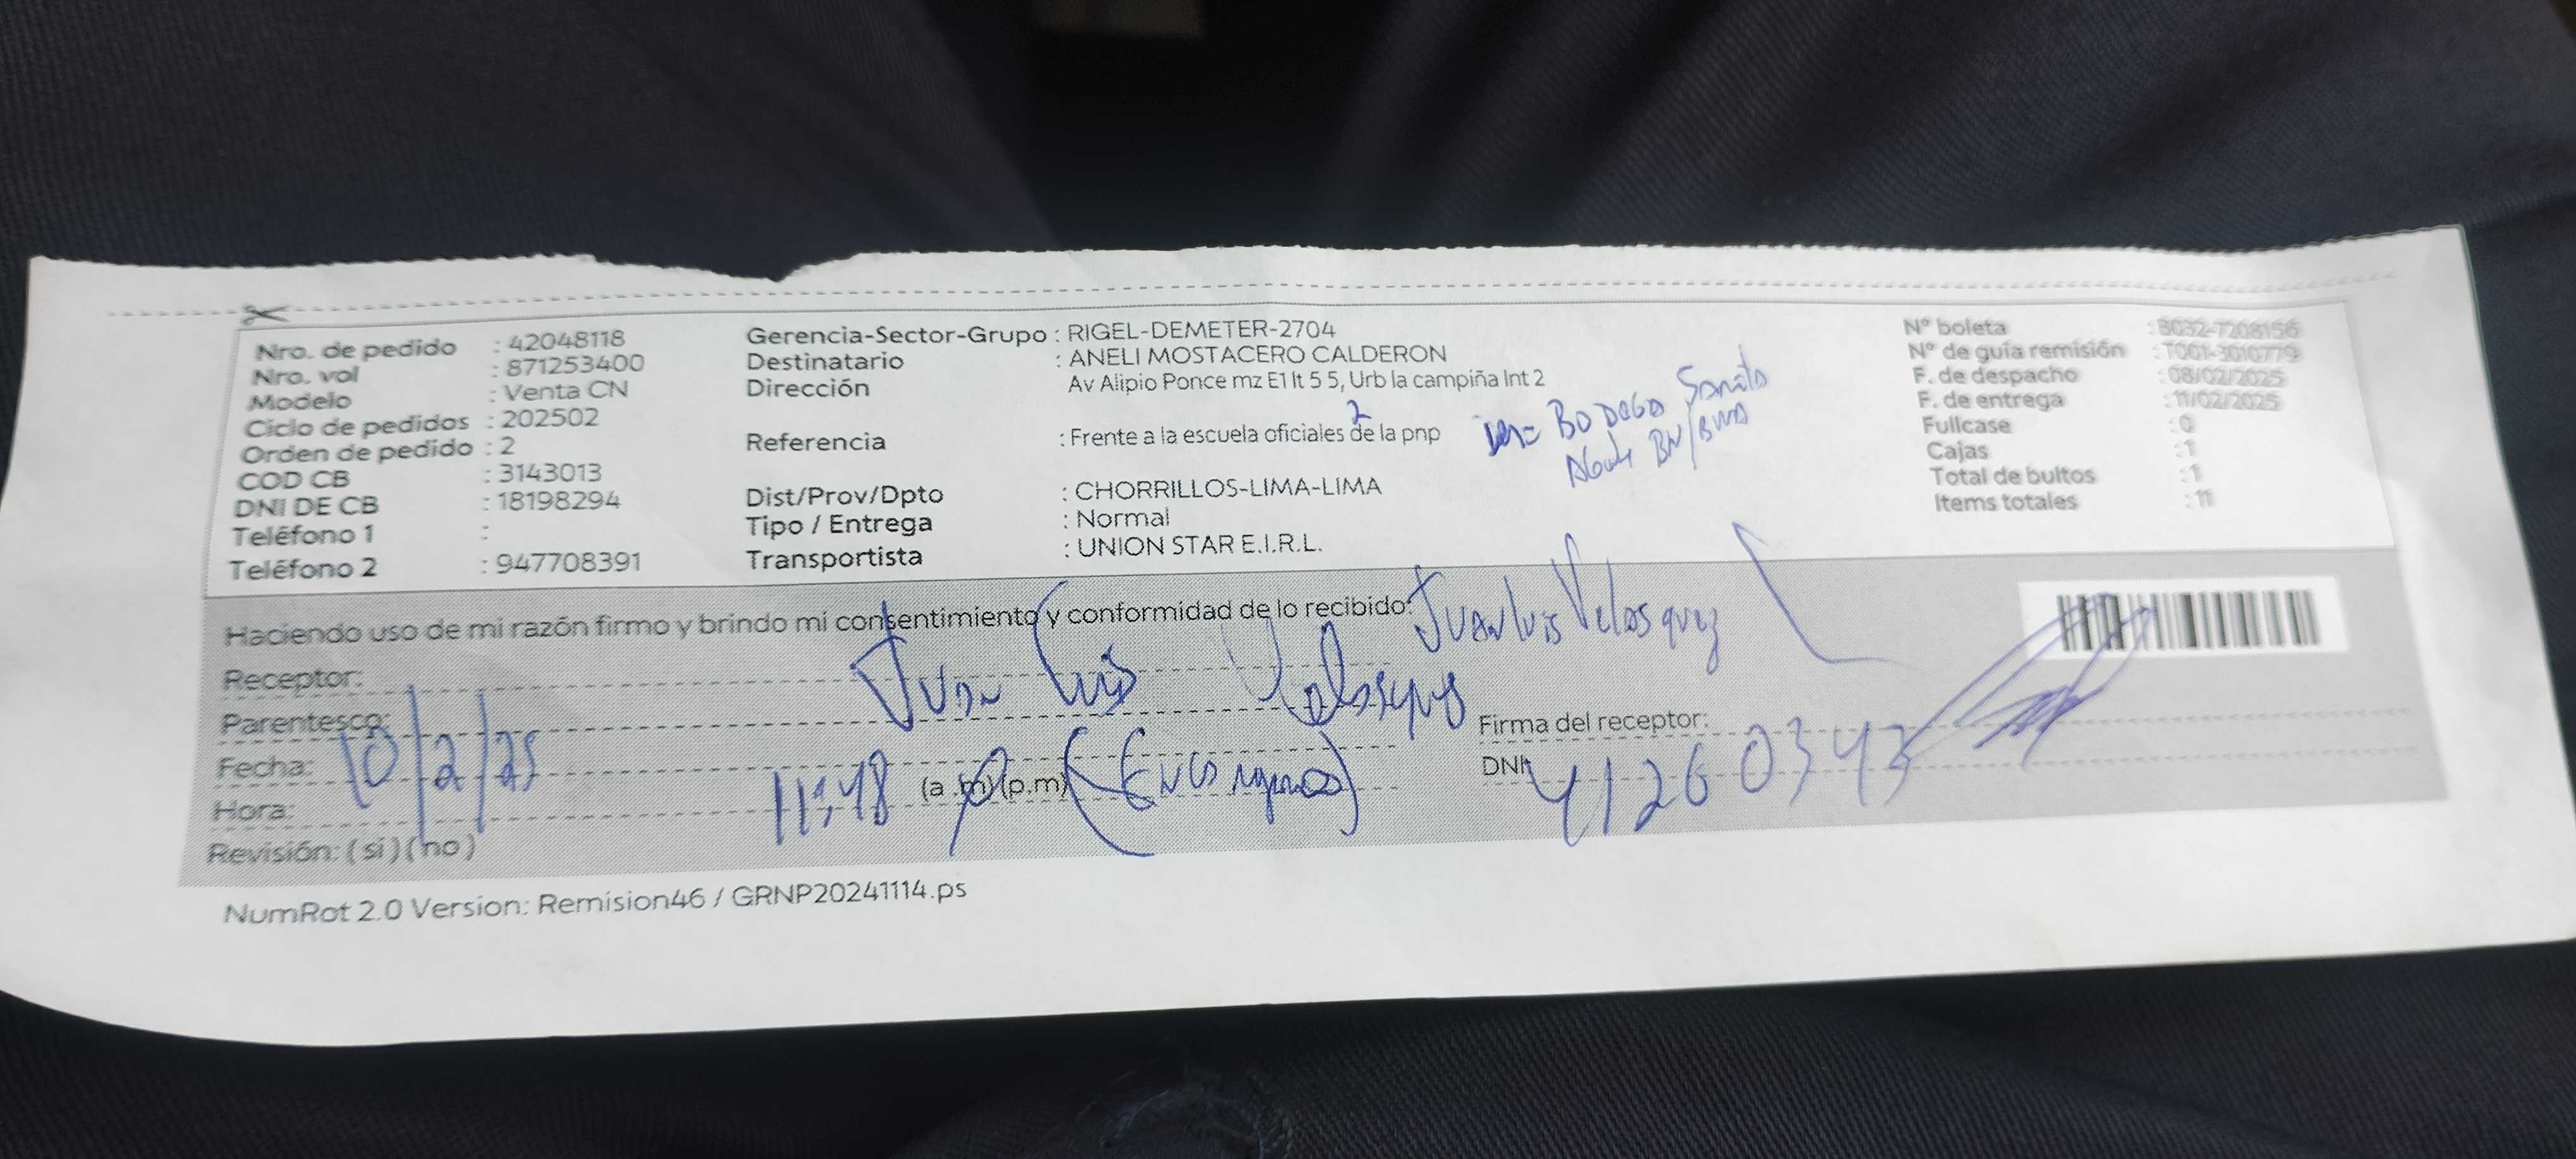 Nro. de pedido : 42048118
Nro. vol : 871253400
Modelo : Venta CN
Ciclo de pedidos : 202502
Orden de pedido : 2
COD CB : 3143013
DNI DE CB : 18198294
Teléfono 1 :
Teléfono 2 : 947708391
Gerencia-Sector-Grupo : RIGEL-DEMETER-2704
Destinatario : ANELI MOSTACERO CALDERON
Dirección Av Alipio Ponce mz E1 lt 5 5, Urb la campiña Int 2
2
Referencia : Frente a la escuela oficiales de la pnp
Dist/Prov/Dpto : CHORRILLOS-LIMA-LIMA
Tipo / Entrega : Normal
Transportista : UNION STAR E.I.R.L.
BODEGA
BN/
Nº boleta : B032-7208156
Nº de guía remisión : T001-3010779
F. de despacho : 08/02/2025
F. de entrega : 11/02/2025
Fullcase : 0
Cajas : 1
Total de bultos : 1
Items totales : 11
Haciendo uso de mi razón firmo y brindo mi consentimiento y conformidad de lo recibido: Juan Luis Velasquez
Receptor: Juan Luis Velasquez
Parentesco:
Fecha: 10/2/25
Hora: 11:48 (a.m)(p.m)
Revisión: (si)(no)
Firma del receptor:
DNI: 41260343
NumRot 2.0 Version: Remision46 / GRNP20241114.ps